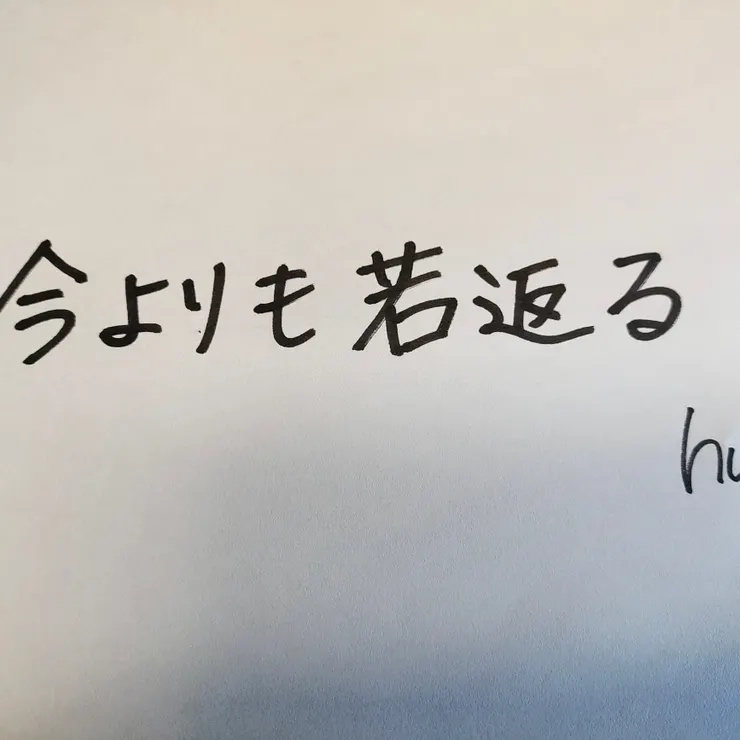 今よりも若返る